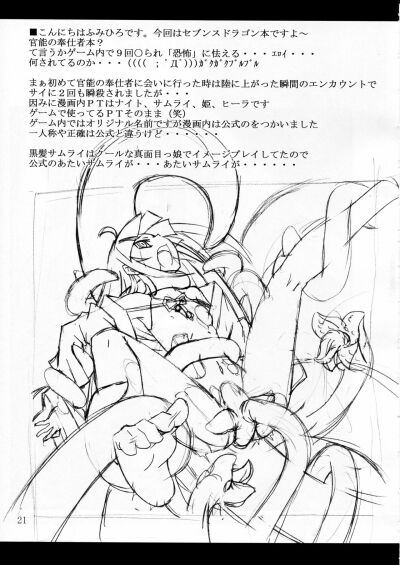 ■こんにちはふみひろです。今回はセブンスドラゴン本ですよ～
官能の奉仕者本？
て言うかゲーム内で９回〇られ「恐怖」に怯える・・・ｴﾛｲ・・・
何されてるのか・・・((((；ﾟДﾟ)))ｶﾞｸｶﾞｸﾌﾞﾙﾌﾞﾙ
まぁ初めて官能の奉仕者に会いに行った時は陸に上がった瞬間のエンカウントで
サイに２回も瞬殺されましたが・・・
因みに漫画内ＰＴはナイト、サムライ、姫、ヒーラです
ゲームで使ってるＰＴそのまま（笑）
ゲーム内ではオリジナル名前ですが漫画内は公式のをつかいました
一人称や正確は公式と違うけど・・・・・・
黒髪サムライはクールな真面目っ娘でイメージプレイしてたので
公式のあたいサムライが・・・あたいサムライが・・・・・・
21